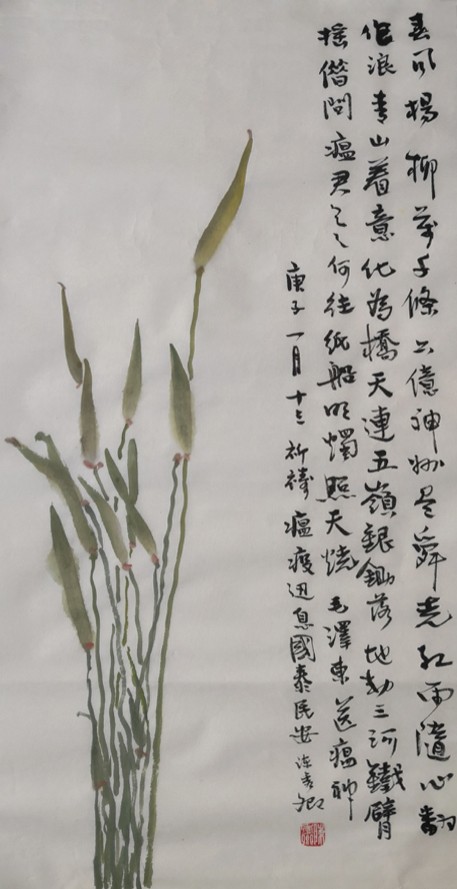 春风楊柳萬千條六億神州尽舜尧红雨隨心翻
作浪青山着意化為橋天連五嶺銀鋤落地动三河鐵臂
摇借問瘟君欲何往纸船明燭照天燒毛澤東送瘟神
庚子一月十祈禱瘟疫迅息國泰民安